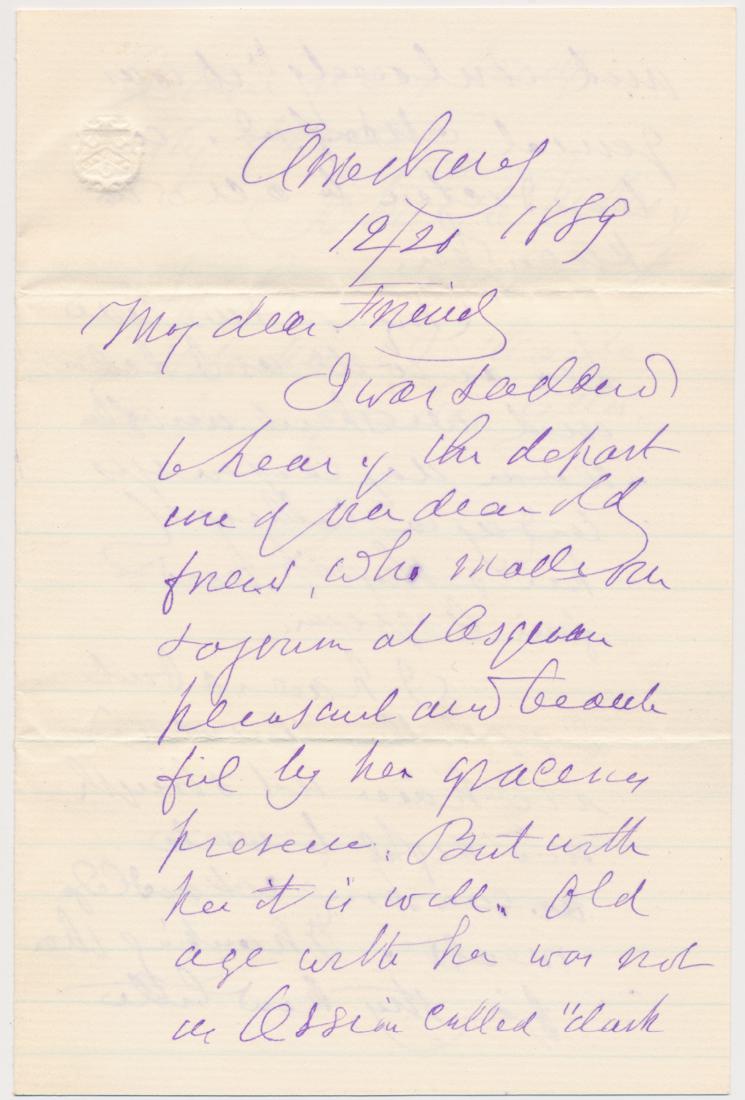 Amesbury
12/20 1889
My dear Friend
I was saddened
to hear of the depart
ure of our dear old
friend, who made our
sojourn at Asquam
pleasant and beauti
ful by her gracious
presence. But with
her it is well. Old
age with her was not
as Ossian called "dark